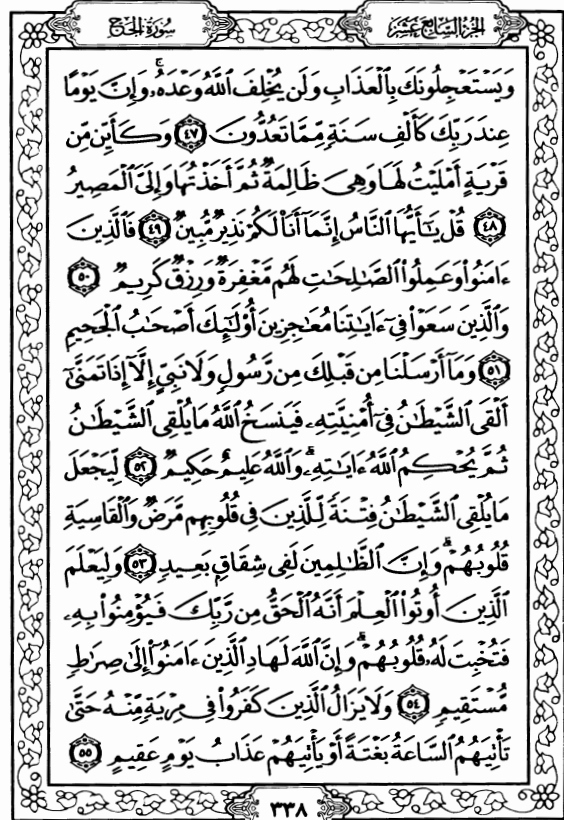 سُورَةُ الحَجّ
الجُزءُ السَّابِعَ عَشَرَ
وَيَسْتَعْجِلُونَكَ بِٱلْعَذَابِ وَلَن يُخْلِفَ ٱللَّهُ وَعْدَهُۥۚ وَإِنَّ يَوْمًا
عِندَ رَبِّكَ كَأَلْفِ سَنَةٍ مِّمَّا تَعُدُّونَ ٤٧ وَكَأَيِّن مِّن
قَرْيَةٍ أَمْلَيْتُ لَهَا وَهِىَ ظَالِمَةٌ ثُمَّ أَخَذْتُهَا وَإِلَىَّ ٱلْمَصِيرُ
٤٨ قُلْ يَٰٓأَيُّهَا ٱلنَّاسُ إِنَّمَآ أَنَا۠ لَكُمْ نَذِيرٌ مُّبِينٌ ٤٩ فَٱلَّذِينَ
ءَامَنُوا۟ وَعَمِلُوا۟ ٱلصَّٰلِحَٰتِ لَهُم مَّغْفِرَةٌ وَرِزْقٌ كَرِيمٌ ٥٠
وَٱلَّذِينَ سَعَوْا۟ فِىٓ ءَايَٰتِنَا مُعَٰجِزِينَ أُو۟لَٰٓئِكَ أَصْحَٰبُ ٱلْجَحِيمِ
٥١ وَمَآ أَرْسَلْنَا مِن قَبْلِكَ مِن رَّسُولٍ وَلَا نَبِىٍّ إِلَّآ إِذَا تَمَنَّىٰٓ
أَلْقَى ٱلشَّيْطَٰنُ فِىٓ أُمْنِيَّتِهِۦ فَيَنسَخُ ٱللَّهُ مَا يُلْقِى ٱلشَّيْطَٰنُ
ثُمَّ يُحْكِمُ ٱللَّهُ ءَايَٰتِهِۦۗ وَٱللَّهُ عَلِيمٌ حَكِيمٌ ٥٢ لِّيَجْعَلَ
مَا يُلْقِى ٱلشَّيْطَٰنُ فِتْنَةً لِّلَّذِينَ فِى قُلُوبِهِم مَّرَضٌ وَٱلْقَاسِيَةِ
قُلُوبُهُمْۗ وَإِنَّ ٱلظَّٰلِمِينَ لَفِى شِقَاقٍۭ بَعِيدٍ ٥٣ وَلِيَعْلَمَ
ٱلَّذِينَ أُوتُوا۟ ٱلْعِلْمَ أَنَّهُ ٱلْحَقُّ مِن رَّبِّكَ فَيُؤْمِنُوا۟ بِهِۦ
فَتُخْبِتَ لَهُۥ قُلُوبُهُمْۗ وَإِنَّ ٱللَّهَ لَهَادِ ٱلَّذِينَ ءَامَنُوٓا۟ إِلَىٰ صِرَٰطٍ
مُّسْتَقِيمٍ ٥٤ وَلَا يَزَالُ ٱلَّذِينَ كَفَرُوا۟ فِى مِرْيَةٍ مِّنْهُ حَتَّىٰ
تَأْتِيَهُمُ ٱلسَّاعَةُ بَغْتَةً أَوْ يَأْتِيَهُمْ عَذَابُ يَوْمٍ عَقِيمٍ ٥٥
٣٣٨